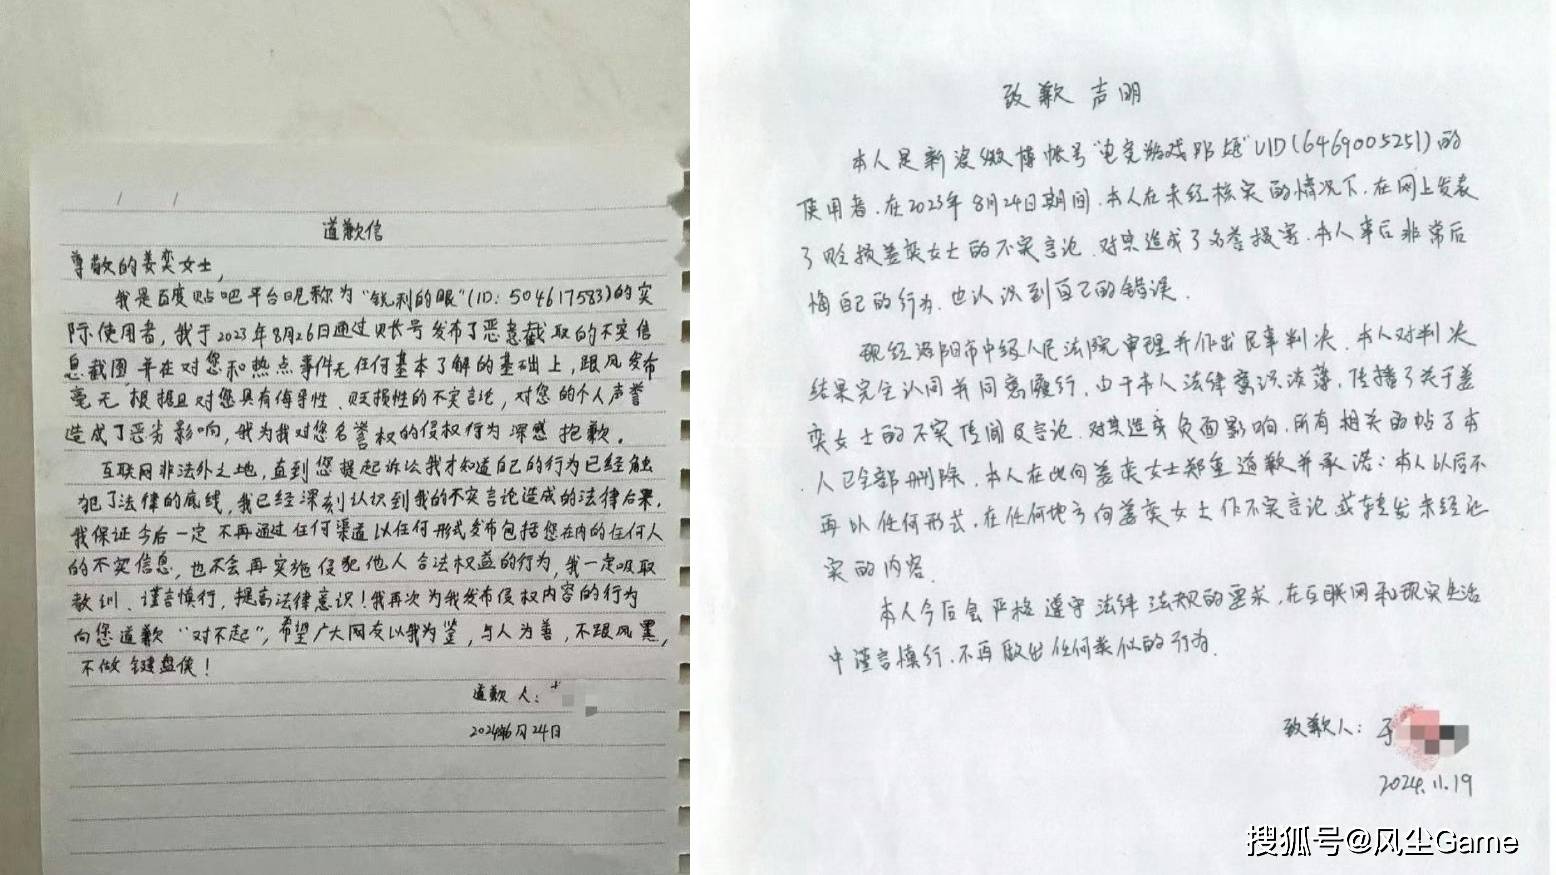 道歉信
尊敬的姜奕女士,
我是百度贴吧平台昵称为“锐利的眼”(ID:504617583)的实
际使用者，我于2023年8月26日通过贝长号发布了恶意截取的不实信
息截图并在对您和热点事件无任何基本了解的基础上，跟风发布
毫无根据且对您具有侮辱性、贬损性的不实言论，对您的个人声誉
造成了恶劣影响，我为我对您名誉权的侵权行为深感抱歉。
互联网非法外之地，直到您提起诉讼我才知道自己的行为已经触
犯了法律的底线，我已经深刻认识到我的不实言论造成的法律后果，
我保证今后一定不再通过任何渠道以任何形式发布包括您在内的任何人
的不实信息，也不会再实施侵犯他人合法权益的行为，我一定吸取
教训、谨言慎行，提高法律意识！我再次为我发布侵权内容的行为
向您道歉“对不起”，希望广大网友以我为鉴，与人为善，不跟风黑，
不做键盘侠！
道歉人：
2024年6月24日
致歉声明
本人是新浪微博帐号“电竞游戏那姐”UID(6469005251)的
使用者.在2023年8月24日期间.本人在未经核实的情况下.在网上发表
了贬损姜奕女士的不实言论.对其造成了名誉损害.本人事后非常后
悔自己的行为.也认识到自己的错误.
现经洛阳市中级人民法院审理并作出民事判决.本人对判决
结果完全认同并同意履行.由于本人法律意识淡薄,传播了关于姜
奕女士的不实传闻及言论.对其造成负面影响.所有相关的帖子本
人已全部删除.本人在此向姜奕女士郑重道歉并承诺：本人以后不
再以任何形式.在任何地方向姜奕女士作不实言论或转发未经证
实的内容.
本人今后会严格遵守法律法规的要求,在互联网和现实生活
中谨言慎行.不再做出任何类似的行为.
致歉人：于
2024.11.19
搜狐号@风尘Game